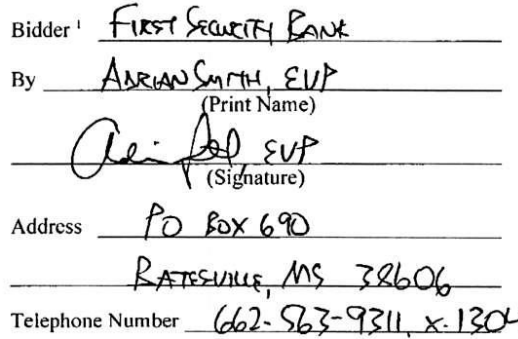 Bidder ¹ FIRST SECURITY BANK
By ADRIAN SMITH, EVP
(Print Name)
EVP
(Signature)
Address PO BOX 690
BATESVILLE, MS 38606
Telephone Number 662-563-9311, x.1304